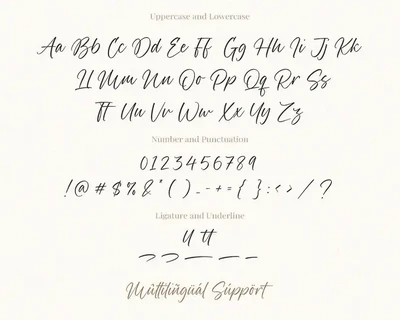 Uppercase and Lowercase
Aa Bb Cc Dd Ee Ff Gg Hh Ii Jj Kk
Ll Mm Nn Oo Pp Qq Rr Ss
Tt Uu Vv Ww Xx Yy Zz
Number and Punctuation
0123456789
! @ # $ % & * ( ) _ - + = { } : < > / ?
Ligature and Underline
ll tt
Multilingual Support